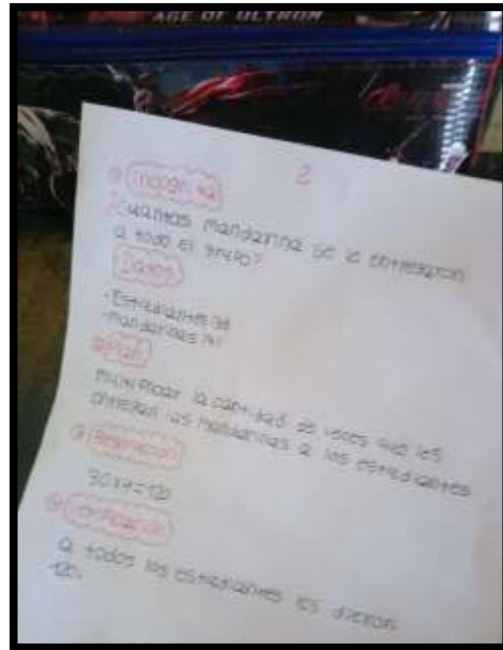 AGE OF ULTRON
2
incógnita
¿cuantas mandarina se le entregaron
a todo el grupo?
Datos
Estudiantes
mandarinas
Plan
Multiplicar la cantidad de veces que les
entregan las mandarinas a los estudiantes
30x4=120
a todos los estudiantes les dieron
120.